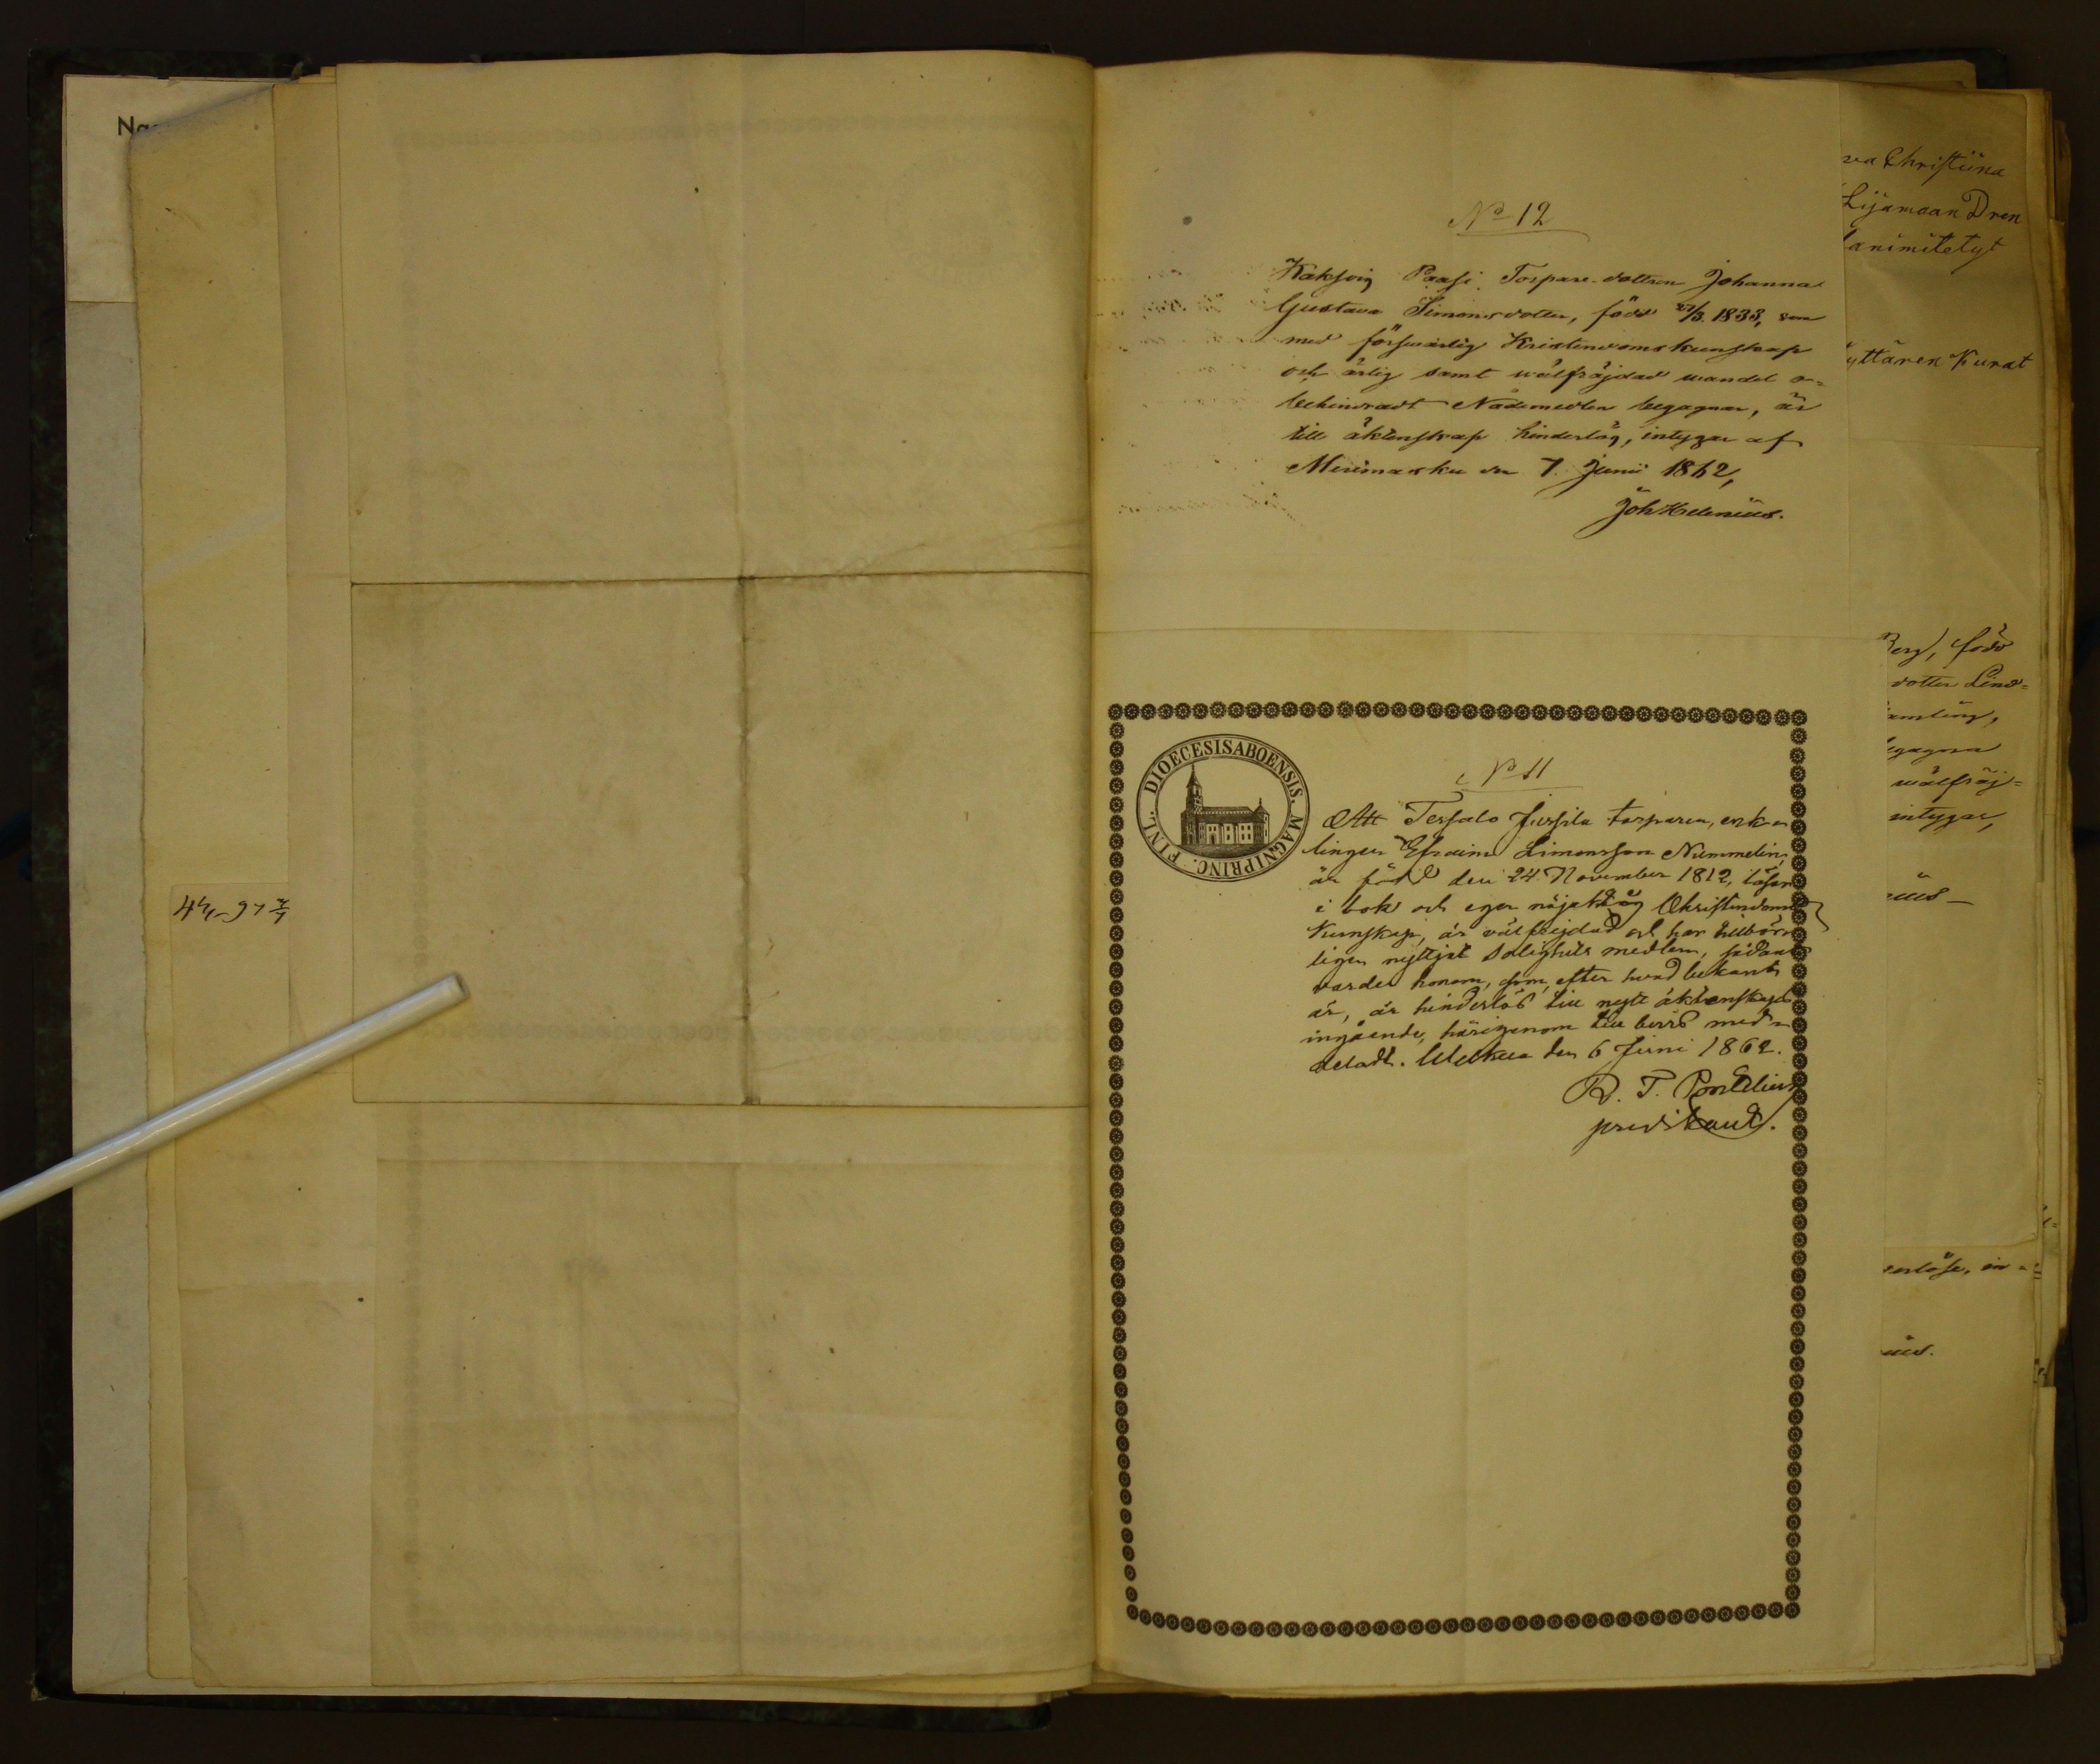 Na
4
No 12
Kaksoin Paasi Torpare-dottren Johanna
Gustava Simonsdotter, född 27/3. 1833, som
med förswarlig Kristendomskunskap
och ärlig samt wälfräjdad wandel o=
behindradt Nådemedlen begagnar, är
till äktenskap hinderlös, intygar af
Merimasku den 7 Junii 1862,
Joh Helenius.
DIOECESIS ABOENSIS. MAGNI PRINC. FINL.
No 11
Att Tersalo Jussila torparen, enk-
lingen Efraim Simonsson Nummelin,
är född den 24 November 1812, läser
i bok och eger nöjaktig Christendoms
Kunskap, är välfrejdad och har tillbör-
ligen nyttjat Salighets medlen, sådant
varder honom, som, efter hvad bekant
är, är hinderlös till nytt äktenskaps
ingående, härigenom till bevis med-
deladt. Welkua den 6 Juni 1862.
R. T. Pontelius
predikant.
va Christiina
Lijamaan Dren
animitetyt
yttären Kunat
Berg, född
dotter Lind=
amling,
egagna
wälfräj=
intygar,
ius
erlöse, in=
ius.